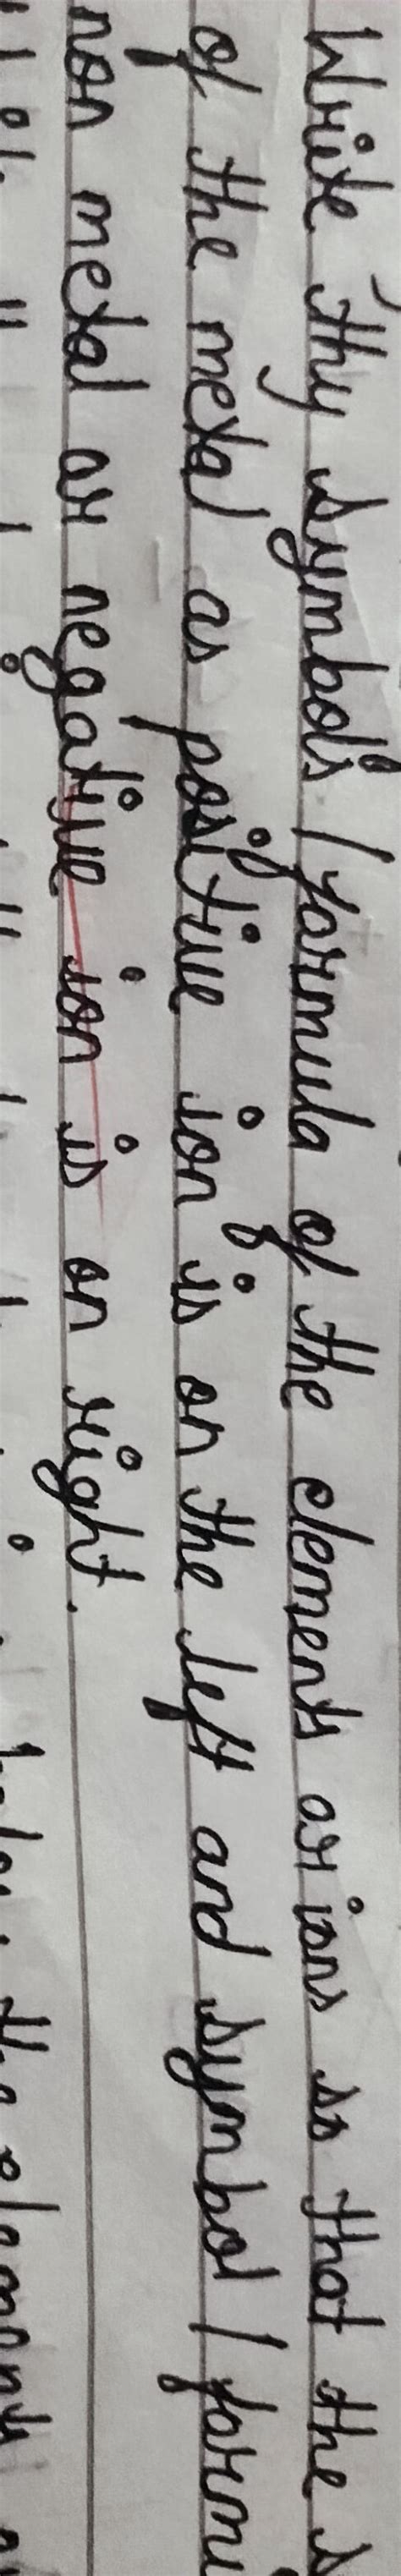 Write thy symbols / formula of the elements or ions so that the
of the metal as positive ion is on the left and symbol / formu
non metal or negative ion is on right.